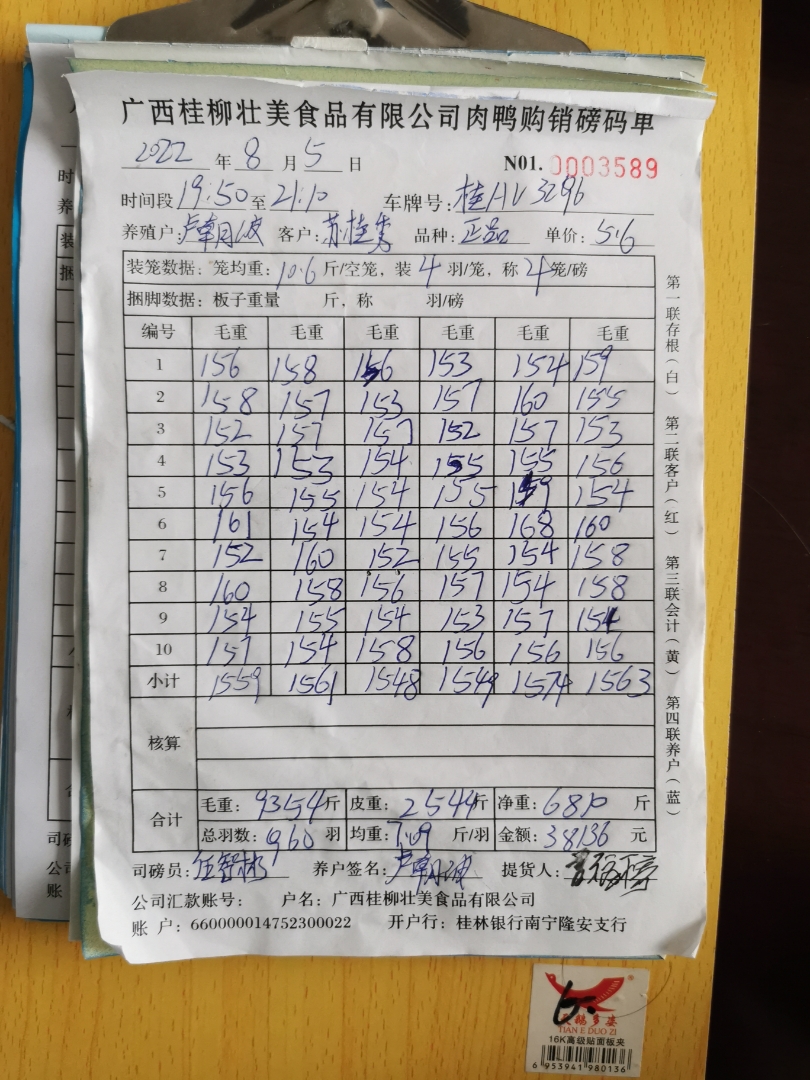 广西桂柳壮美食品有限公司肉鸭购销磅码单
2022 年 8 月 5 日 N01. 0003589
时间段 19:50 至 21:10 车牌号: 桂AV3296
养殖户: 卢朝波 客户: 苏桂隽 品种: 正品 单价: 5.6
装笼数据: 笼均重: 10.6 斤/空笼, 装 4 羽/笼, 称 4 笼/磅
捆脚数据: 板子重量 斤, 称 羽/磅
编号 毛重 毛重 毛重 毛重 毛重 毛重
1 156 158 156 153 154 159
2 158 157 153 157 160 155
3 152 157 157 152 157 153
4 153 153 154 155 155 156
5 156 155 154 155 159 154
6 161 154 154 156 168 160
7 152 160 152 155 154 158
8 160 158 156 157 154 158
9 154 155 154 153 157 154
10 157 154 158 156 156 156
小计 1559 1561 1548 1549 1574 1563
核算
合计 毛重: 9354 斤 皮重: 2544 斤 净重: 6810 斤
总羽数: 960 羽 均重: 7.09 斤/羽 金额: 38136 元
司磅员: 养户签名: 提货人:
公司汇款账号: 户名: 广西桂柳壮美食品有限公司
账户: 660000014752300022 开户行: 桂林银行南宁隆安支行
第一联存根(白) 第二联客户(红) 第三联会计(黄) 第四联养户(蓝)
TIAN E DUO ZI
16K高级贴面板夹
6 953941 980136